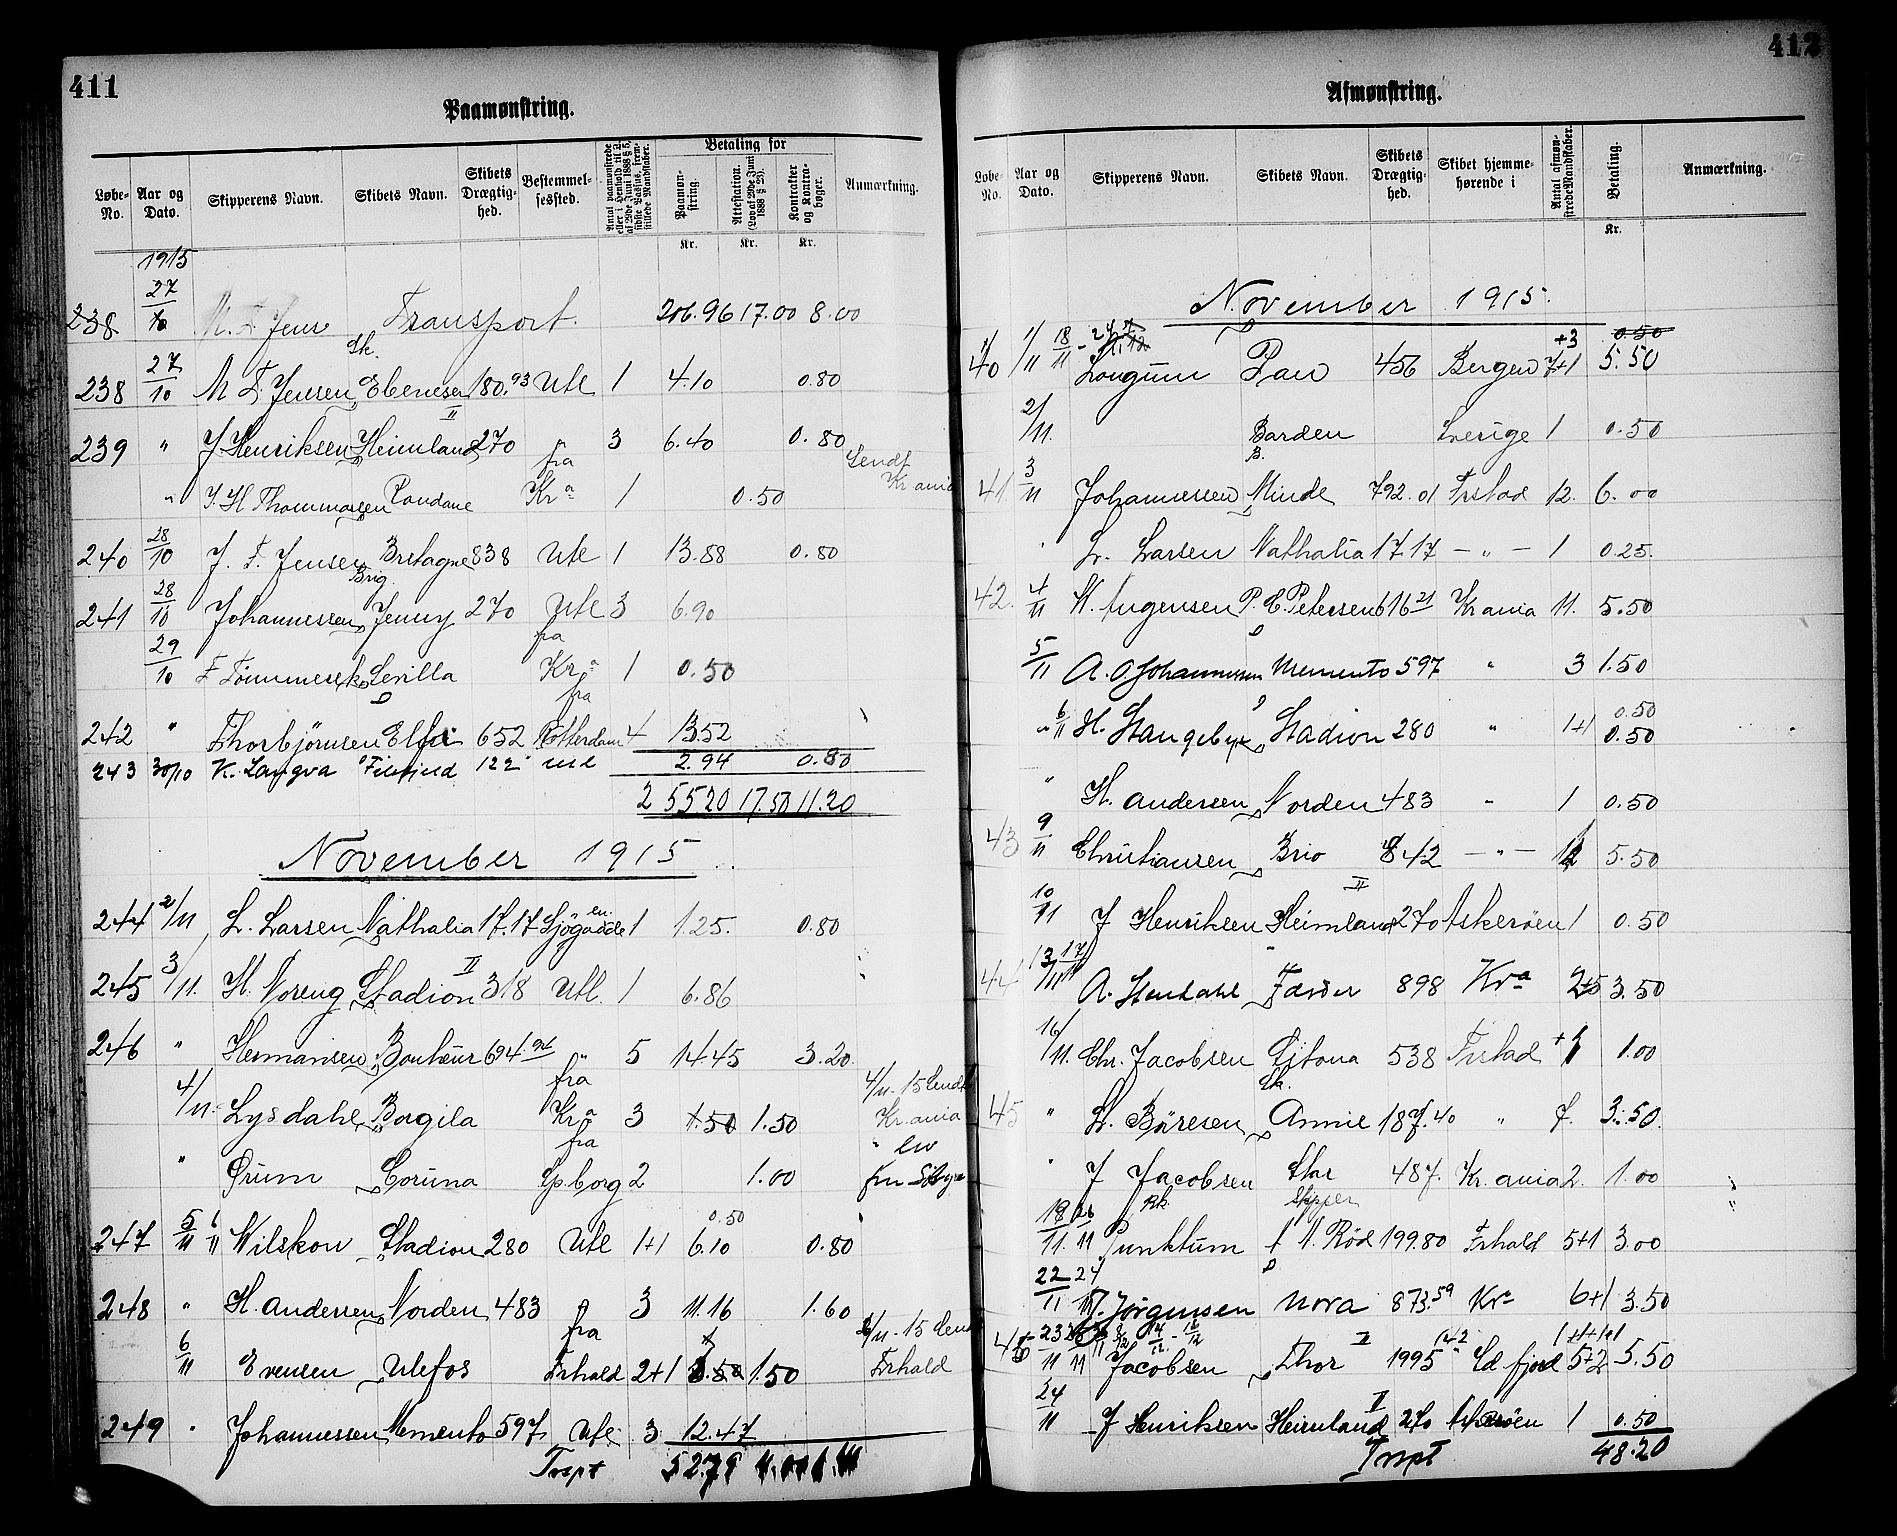 411
Paamønstring.
Løbe-No. Aar og Dato. Skipperens Navn. Skibets Navn. Skibets Drægtig-hed. Bestemmel-sessted. Antal paamønstrede eller i Henhold til § af 29de Juni 1888 § 5, sidste Passus, frem-stillede Mandskaber. Betaling for Paamøn-string. Attestation. (Lov af 29de Juni 1888 § 25). Kontrakter og Kontra-bøger. Anmærkning.
Kr. Kr. Kr.
1915
238 27/10 M. F. Jens Transport. 206.96 17.00 8.00
Sk.
238 27/10 M F. Jensen Ebeneser 180.93 Utl 1 4.10 0.80
II
239 " J Henriksen Heimland 270 " 3 6.40 0.80
fra Sendt
" J. H Thommassen Rondane Kr.a 1 0.50 Kr ania
240 28/10 J. F. Jensen Bretagne 838 Utl 1 13.88 0.80
Brig.
241 28/10 Johannessen Jenny 270 Utl 3 6.90
fra
29/10 Sevilla Kra 1 0.50
fra
242 " Thorbjörnsen 652 Rotterdam 4 13.52
243 30/10 K. Langva 122 utl 2.94 0.80
255 20 17.50 11.20
November 1915
244 2/11 L. Larsen Nathalia 17.17 1 1.25. 0.80
245 3/11. H. Noreng Stadion II 318 Utl. 1 6.86
246 " Hermansen Bonheur 694.94 " 5 14.45 3.20
fra 4/11-15 Sendt
4/11. Lysdahl Borgila Kra 3 1.50 1.50 Kr. ania
fra
" Ørum Coruna Sp.borg 2 1.00
0.50
247 5/11 6/11 Wilskow Stadion 280 Utl 1+1 6.10 0.80
248 " H. Andersen Norden 483 " 3 11.16 1.60
fra
6/11 Evensen Ulefos Frhald 2+1 1.50 Frhald
249 " Johannessen Memento 597 Utl 3 12.47
Trspt
412
Afmønstring.
Løbe-No. Aar og Dato. Skipperens Navn. Skibets Navn. Skibets Drægtig-hed. Skibet hjemme-hørende i Antal afmøn-strede Mandskaber. Betaling. Anmærkning.
Kr.
November 1915.
+3 0.50
40 1/11 18/11 Longum Pan 456 Bergen 7+1 5.50
2/11. Barden Sverige 1 0.50
B.
41. 3/11 Johannessen Minde 792.01 Frstad 12. 6.00
L. Larsen Nathalia 17.17 — " — 1 0.25.
42. 4/11 P. C. Petersen 616.21 Kr ania 11. 5.50
5/11 A. O Johannessen Memento 597 " 3 1.50
0.50
" 6/11 H. Stangebye Stadion 280 " 1+1 0.50
" H. Andersen Norden 483 " 1 0.50
43 9/11 Christiansen Brio 842 — " — 5.50
II
10/11 J Henriksen Heimland 270 Askerøen 1 0.50
44 13/11 17/11 A. Stendahl Færder 898 Kra 2+5 3.50
16/11. Chr. Jacobsen 538 Frstad 1.00
Sk.
45 " Børesen Annie 187.40 " 7. 3.50.
" J Jacobsen Star 487. Kr. ania 2. 1.00
Skipper
Punktum f M. Rød 199.80 Frhald 5+1 3.00
22/11 24/11 Jørgensen Nora 873.59 Kra 6+1 3.50
46 Jacobsen Thor II 1995 5+2 5.50
24/11 J Henriksen Heimland II 270 Askerøen 1 0.50
Trspt 48.20